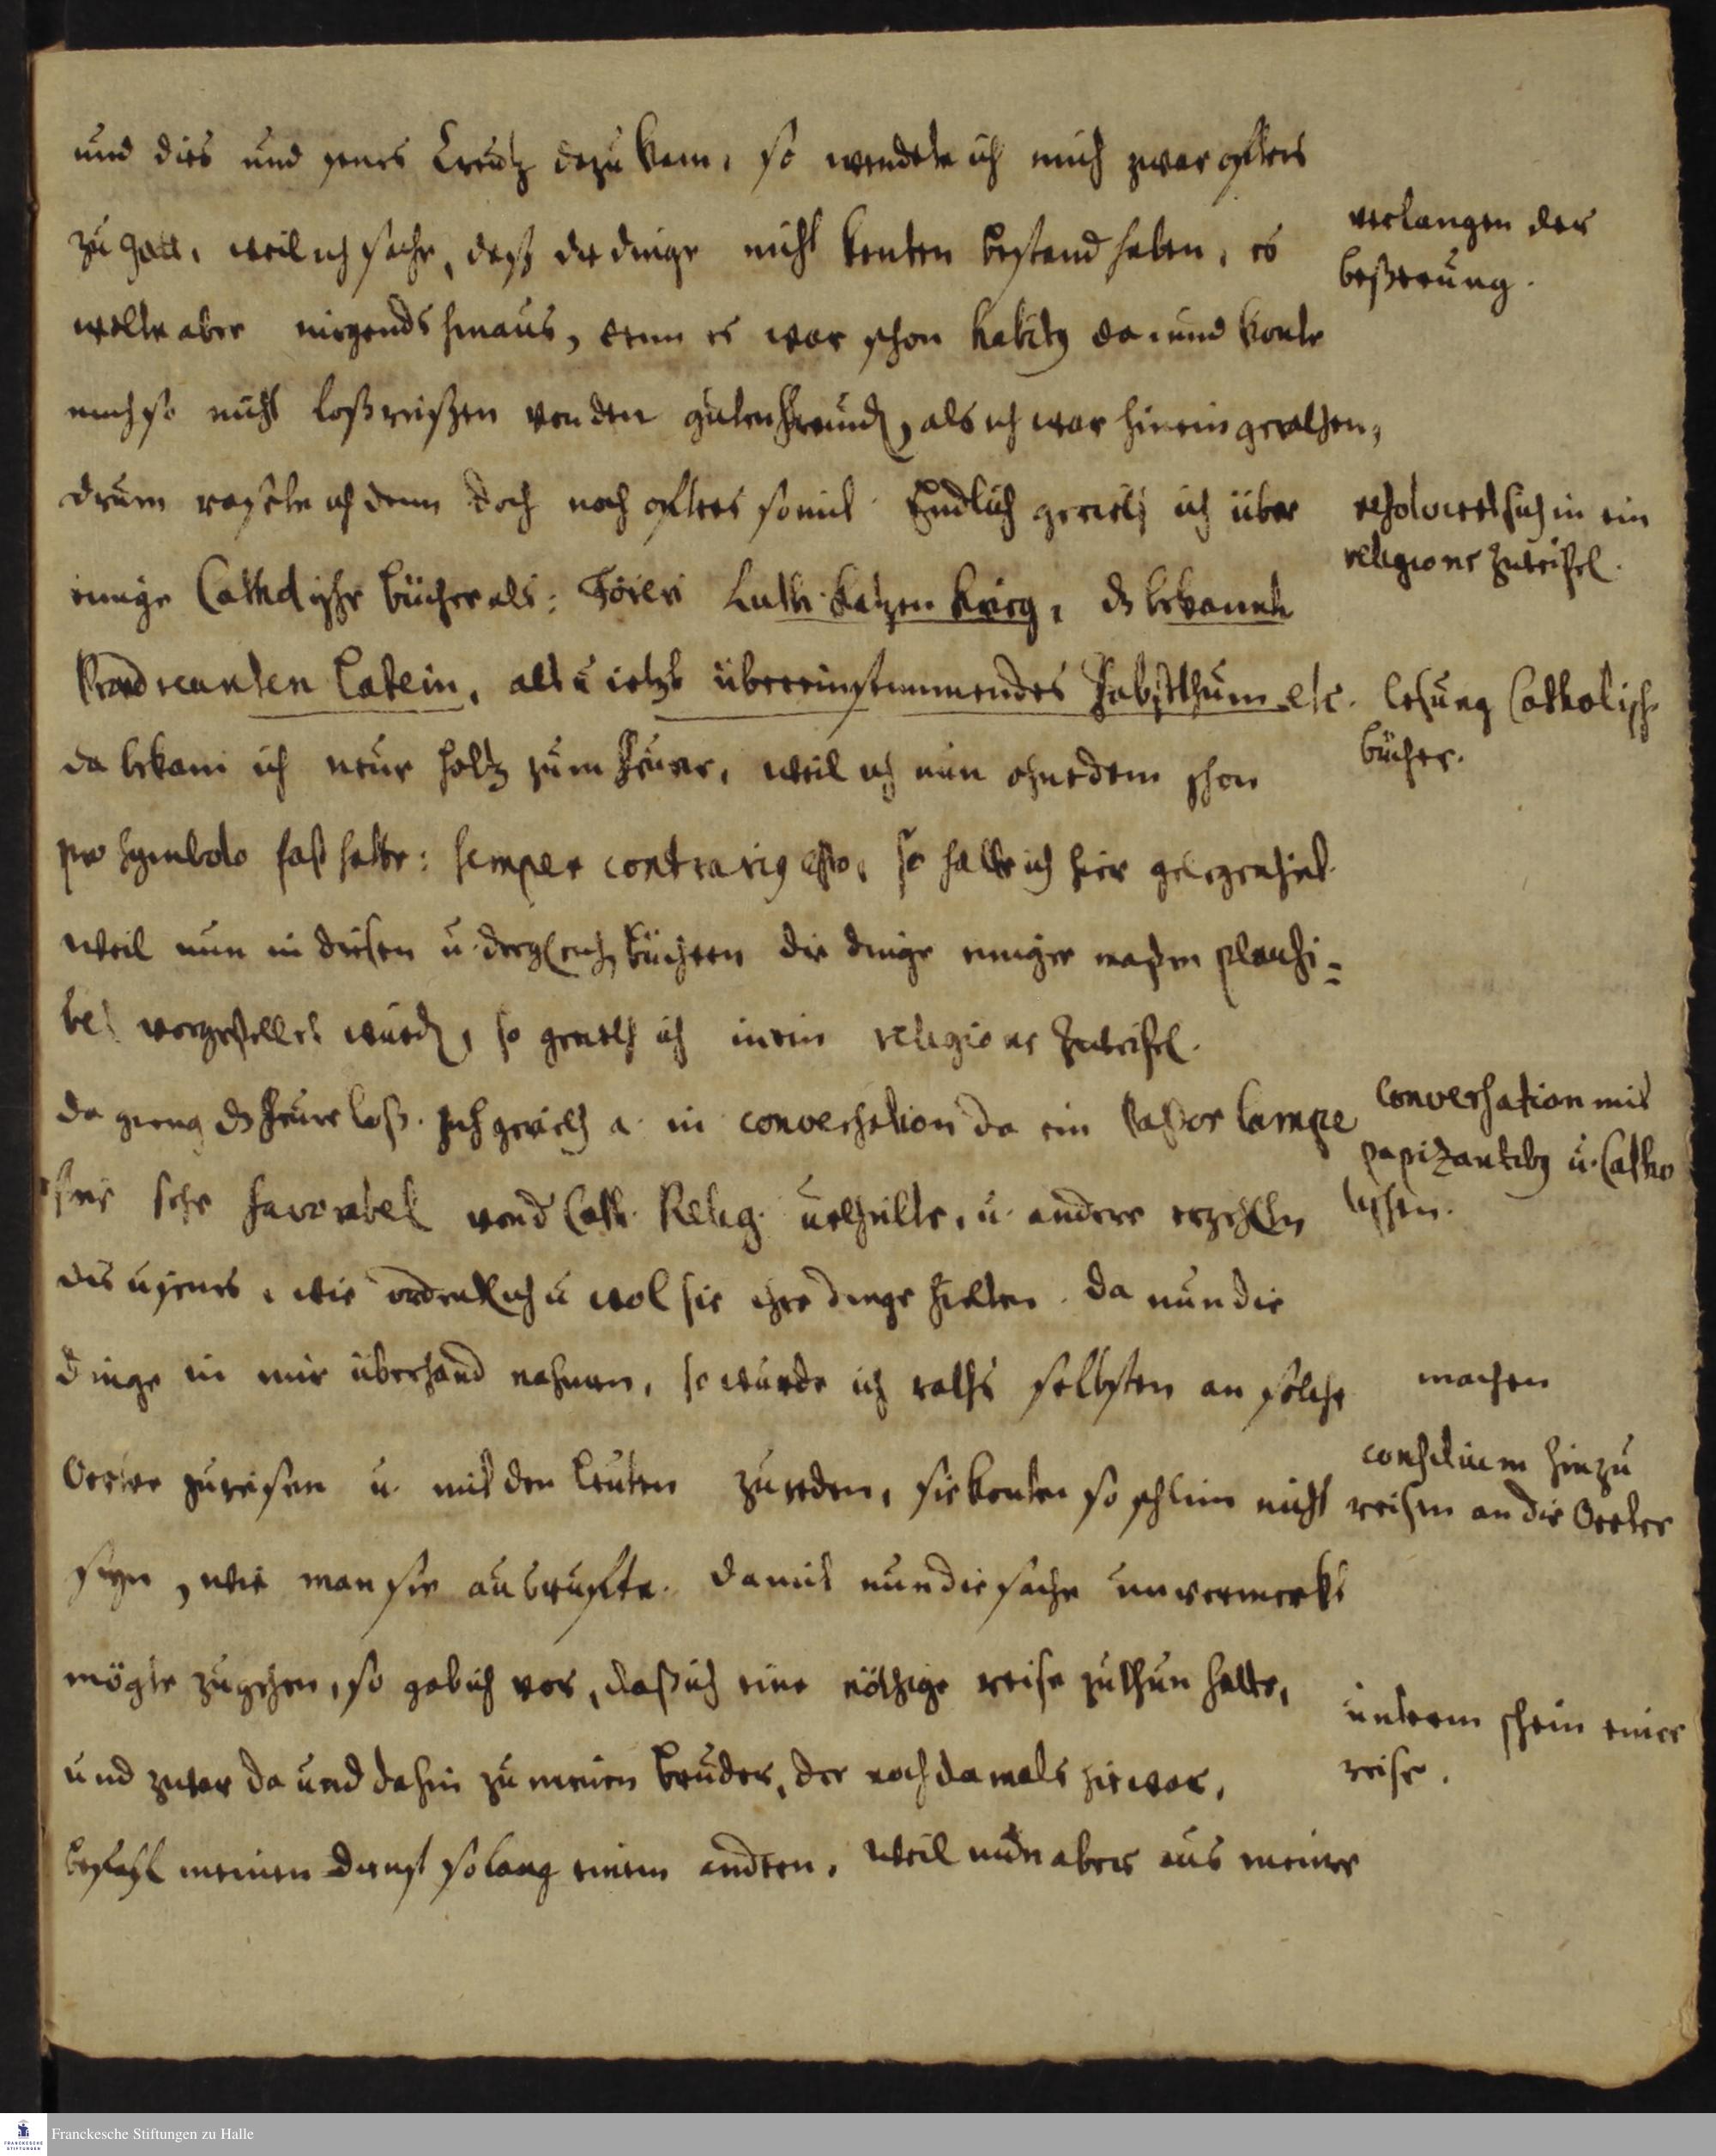 und dies und jenes Creutz dazu kam, so wendete ich mich zwar offters
zu Gott, weil ich sahe, daß die dinge nicht konten bestand haben, es
wolte aber nirgends hinaus, denn es war schon habitus da, und konte
mich so nicht loßreißen von den guten freunden, als ich war hinein gerathen,
drum rasete ich denn doch noch offters so mit. Endlich gerieth ich über
einige Catholische bücher als: Luth. Katzen Krieg, bekannte
Praedicanten Latein, alt u ietzt übereinstimmendes Pabstthum etc.
da bekam ich neue holtz zum feuer, weil ich nun ohnedem schon
pro Symbolo fast hatte: semper contrarius esto, so hatte ich hier gelegenheit.
weil nun in diesen u. dergleichen büchern die dinge einiger maßen plausi=
bel vorgestellet wurden, so gerieth ich in ein religions Zweifel.
da gieng das feuer loß. Ich gerieth a. in conversation da ein Pastor Lampe
sehr favorabel von d Cath. Relig. urtheilte, u. andere erzehlten
dis u jenes, wie ordentlich u wol sie ihre dinge hielten. Da nun die
dinge in mir überhand nahmen, so wurde ich raths selbsten an solche
Oerter zu reisen u. mit den Leuten zu reden, sie konten so schlim nicht
seyn, wie man sie ausruffte. Damit nun die sache unvermerkt
mögte zugehen, so gab ich vor, daß ich eine nöthige reise zu thun hatte,
und zwar da und dahin zu meinen bruder, der noch damals hie war,
befahl meinen dienst so lang einem andren. Weil nun aber aus meiner
verlangen der
beßerung.
resolviret sich in ein
religions Zweifel.
lesung Catholisch.
bücher.
Conversation mit
papizantibus u. Catho
lischen.
machen
consilium hinzu
reisen an die Oerter
unterm schein einer
reise.
Franckesche Stiftungen zu Halle